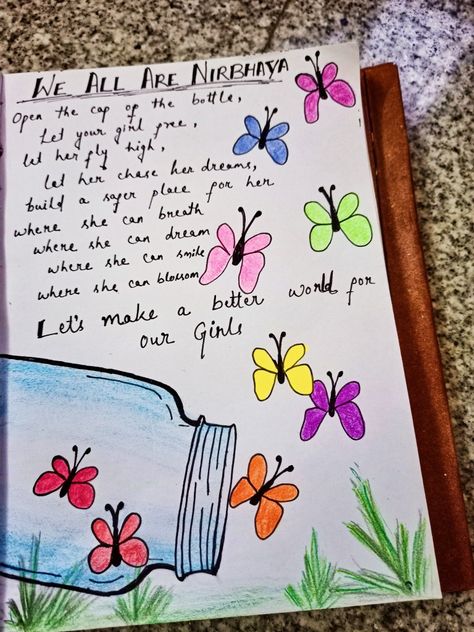 WE ALL ARE NIRBHAYA
Open the cap of the bottle,
Let your girl free,
let her fly high,
let her chase her dreams,
build a safer place for her
where she can breath
where she can dream
where she can smile
where she can blossom
Let's make a better world for
our Girls